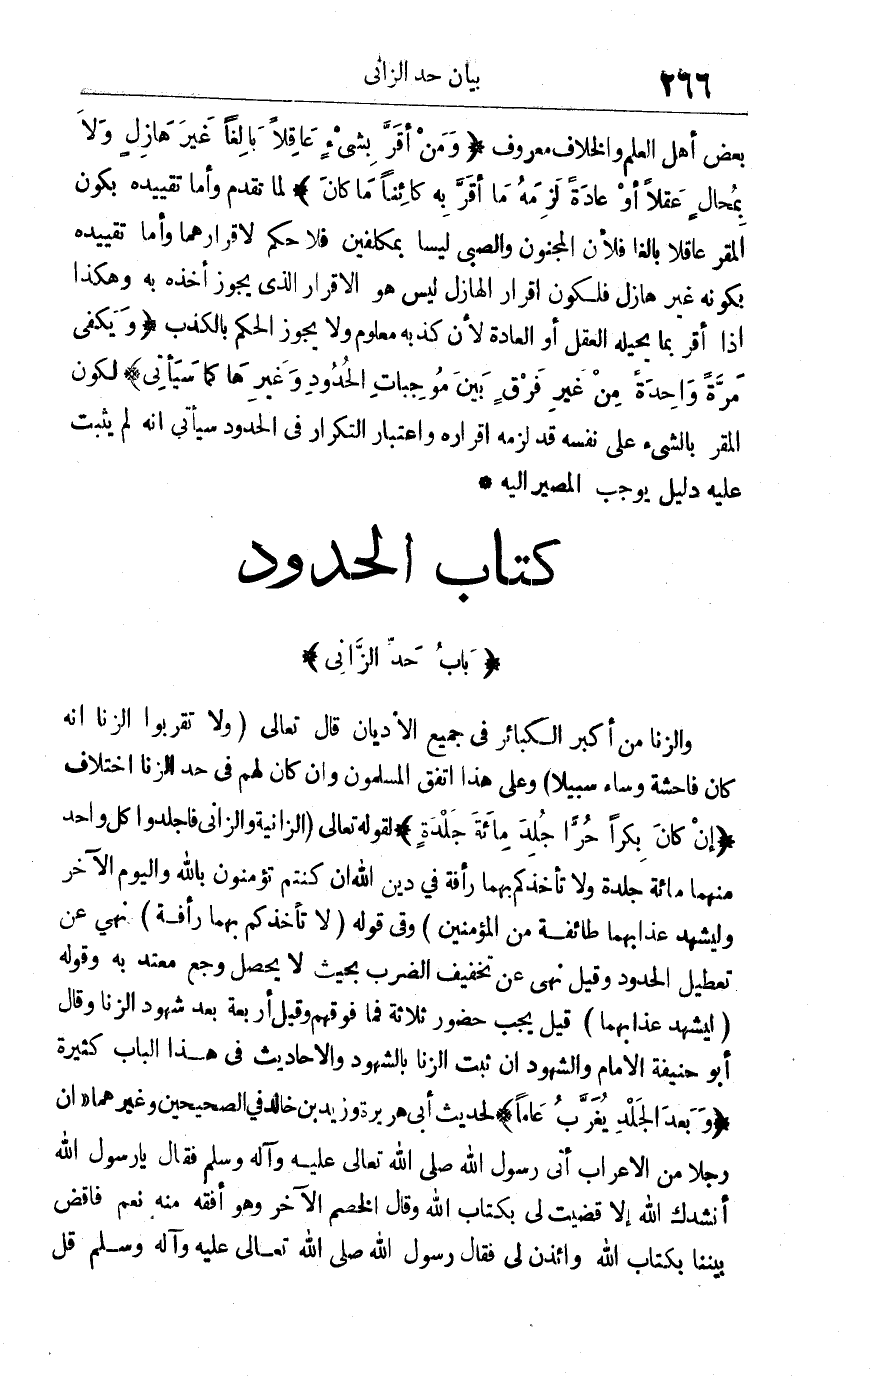 ٢٦٦
بيان حد الزانى
بعض أهل العلم والخلاف معروف ﴿ وَمَنْ أقَرَّ بِشَىْءٍ عَاقِلاً بَالِغاً غَيرَ هَازِلٍ وَلاَ
بِمُحالٍ عَقلاً أوْ عادَةً لَزِمَهُ مَا أقَرَّ بِه كائِناً مَا كانَ ﴾ لما تقدم وأما تقييده بكون
المقر عاقلا بالغا فلأن المجنون والصبى ليسا بمكلفين فلا حكم لاقرارهما وأما تقييده
بكونه غير هازل فلكون اقرار الهازل ليس هو الاقرار الذى يجوز أخذه به وهكذا
اذا أقر بما يحيله العقل أو العادة لأن كذبه معلوم ولا يجوز الحكم بالكذب ﴿ وَيَكفى
مَرَّةً وَاحِدَةً مِنْ غَيرِ فَرْقٍ بَينَ مُوجِباتِ الحُدُودِ وَغَيرِهَا كمَا سَيَأتِى ﴾ لكون
المقر بالشىء على نفسه قد لزمه اقراره واعتبار التكرار فى الحدود سيأتى انه لم يثبت
عليه دليل يوجب المصير اليه *
كتاب الحدود
﴿ بَابُ حَدِّ الزَّانِى ﴾
والزنا من أكبر الكبائر فى جميع الأديان قال تعالى ( ولا تقربوا الزنا انه
كان فاحشة وساء سبيلا) وعلى هذا اتفق المسلمون وان كان لهم فى حد الزنا اختلاف
﴿ إنْ كانَ بِكراً حُرًّا جُلِدَ مِائَةَ جَلْدَةٍ ﴾ لقوله تعالى (الزانية والزانى فاجلدوا كل واحد
منهما مائة جلدة ولا تأخذكم بهما رأفة في دين الله ان كنتم تؤمنون بالله واليوم الآخر
وليشهد عذابهما طائفة من المؤمنين ) وفى قوله ( لا تأخذكم بهما رأفة ) نهي عن
تعطيل الحدود وقيل نهى عن تخفيف الضرب بحيث لا يحصل وجع معتد به وقوله
( ليشهد عذابهما ) قيل يجب حضور ثلاثة فما فوقهم وقيل أربعة بعد شهود الزنا وقال
أبو حنيفة الامام والشهود ان ثبت الزنا بالشهود والاحاديث فى هذا الباب كثيرة
﴿ وَبَعدَ الجَلْدِ يُغَرَّبُ عَاماً ﴾ لحديث أبى هريرة وزيد بن خالد في الصحيحين وغيرهما « ان
رجلا من الاعراب أتى رسول الله صلى الله تعالى عليه وآله وسلم فقال يارسول الله
أنشدك الله إلا قضيت لى بكتاب الله وقال الخصم الآخر وهو أفقه منه نعم فاقض
بيننا بكتاب الله وائذن لى فقال رسول الله صلى الله تعالى عليه وآله وسلم قل